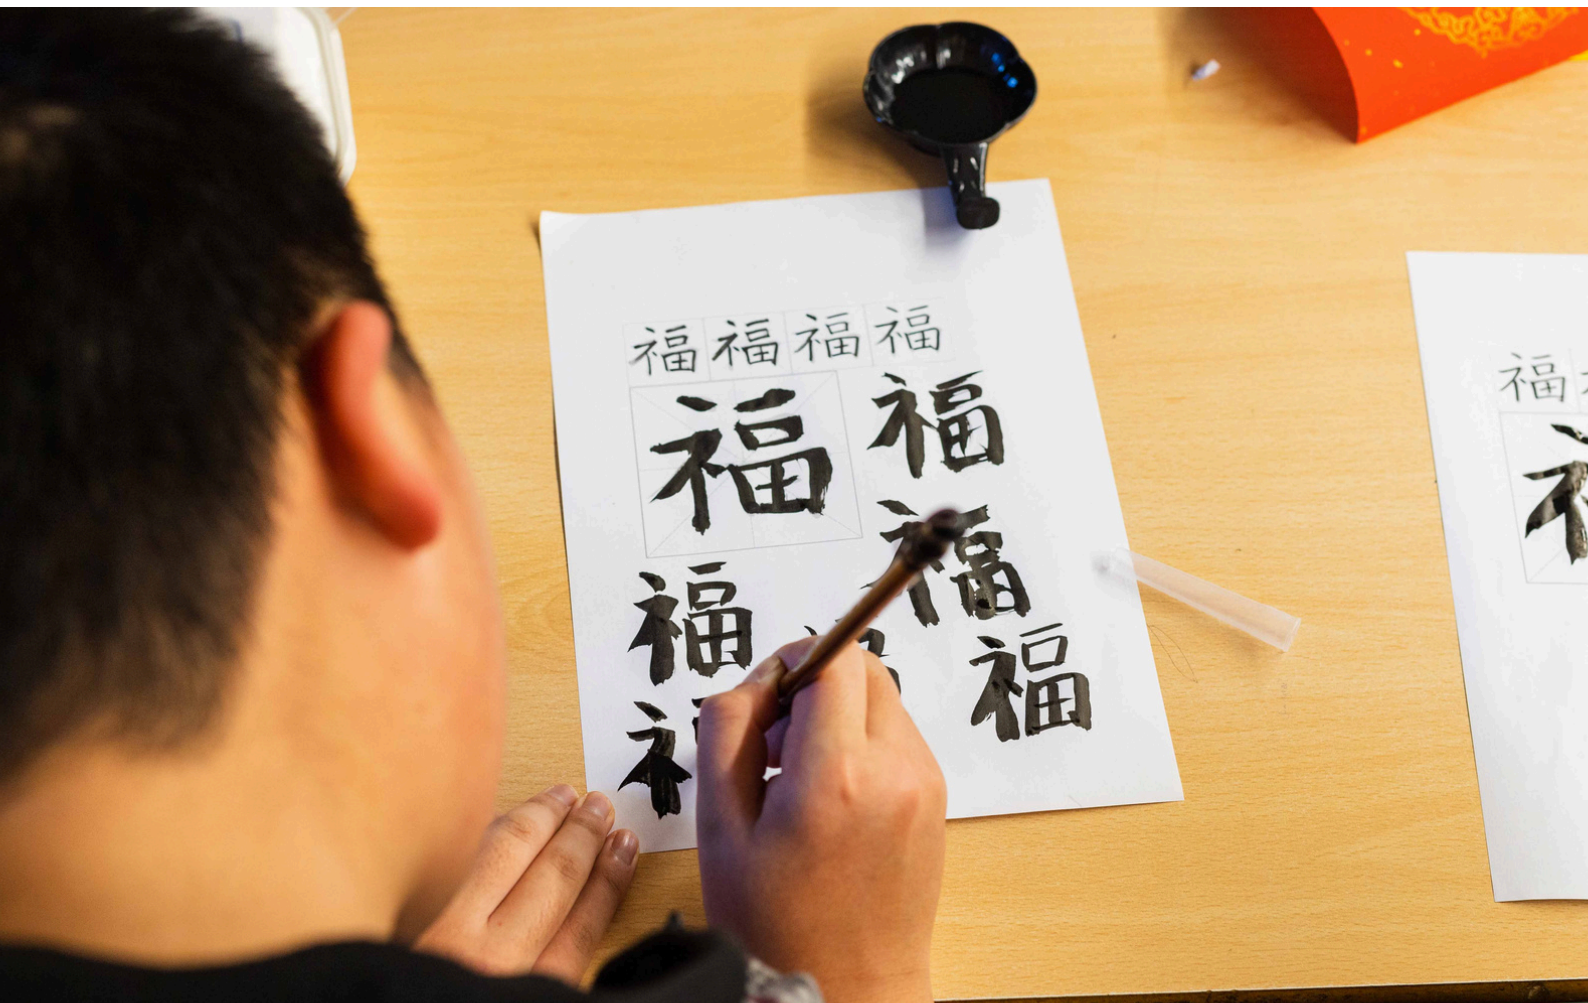 福福福福
福福
福
福
福
福